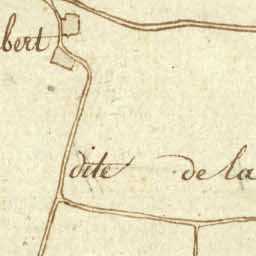 bert
dite de la